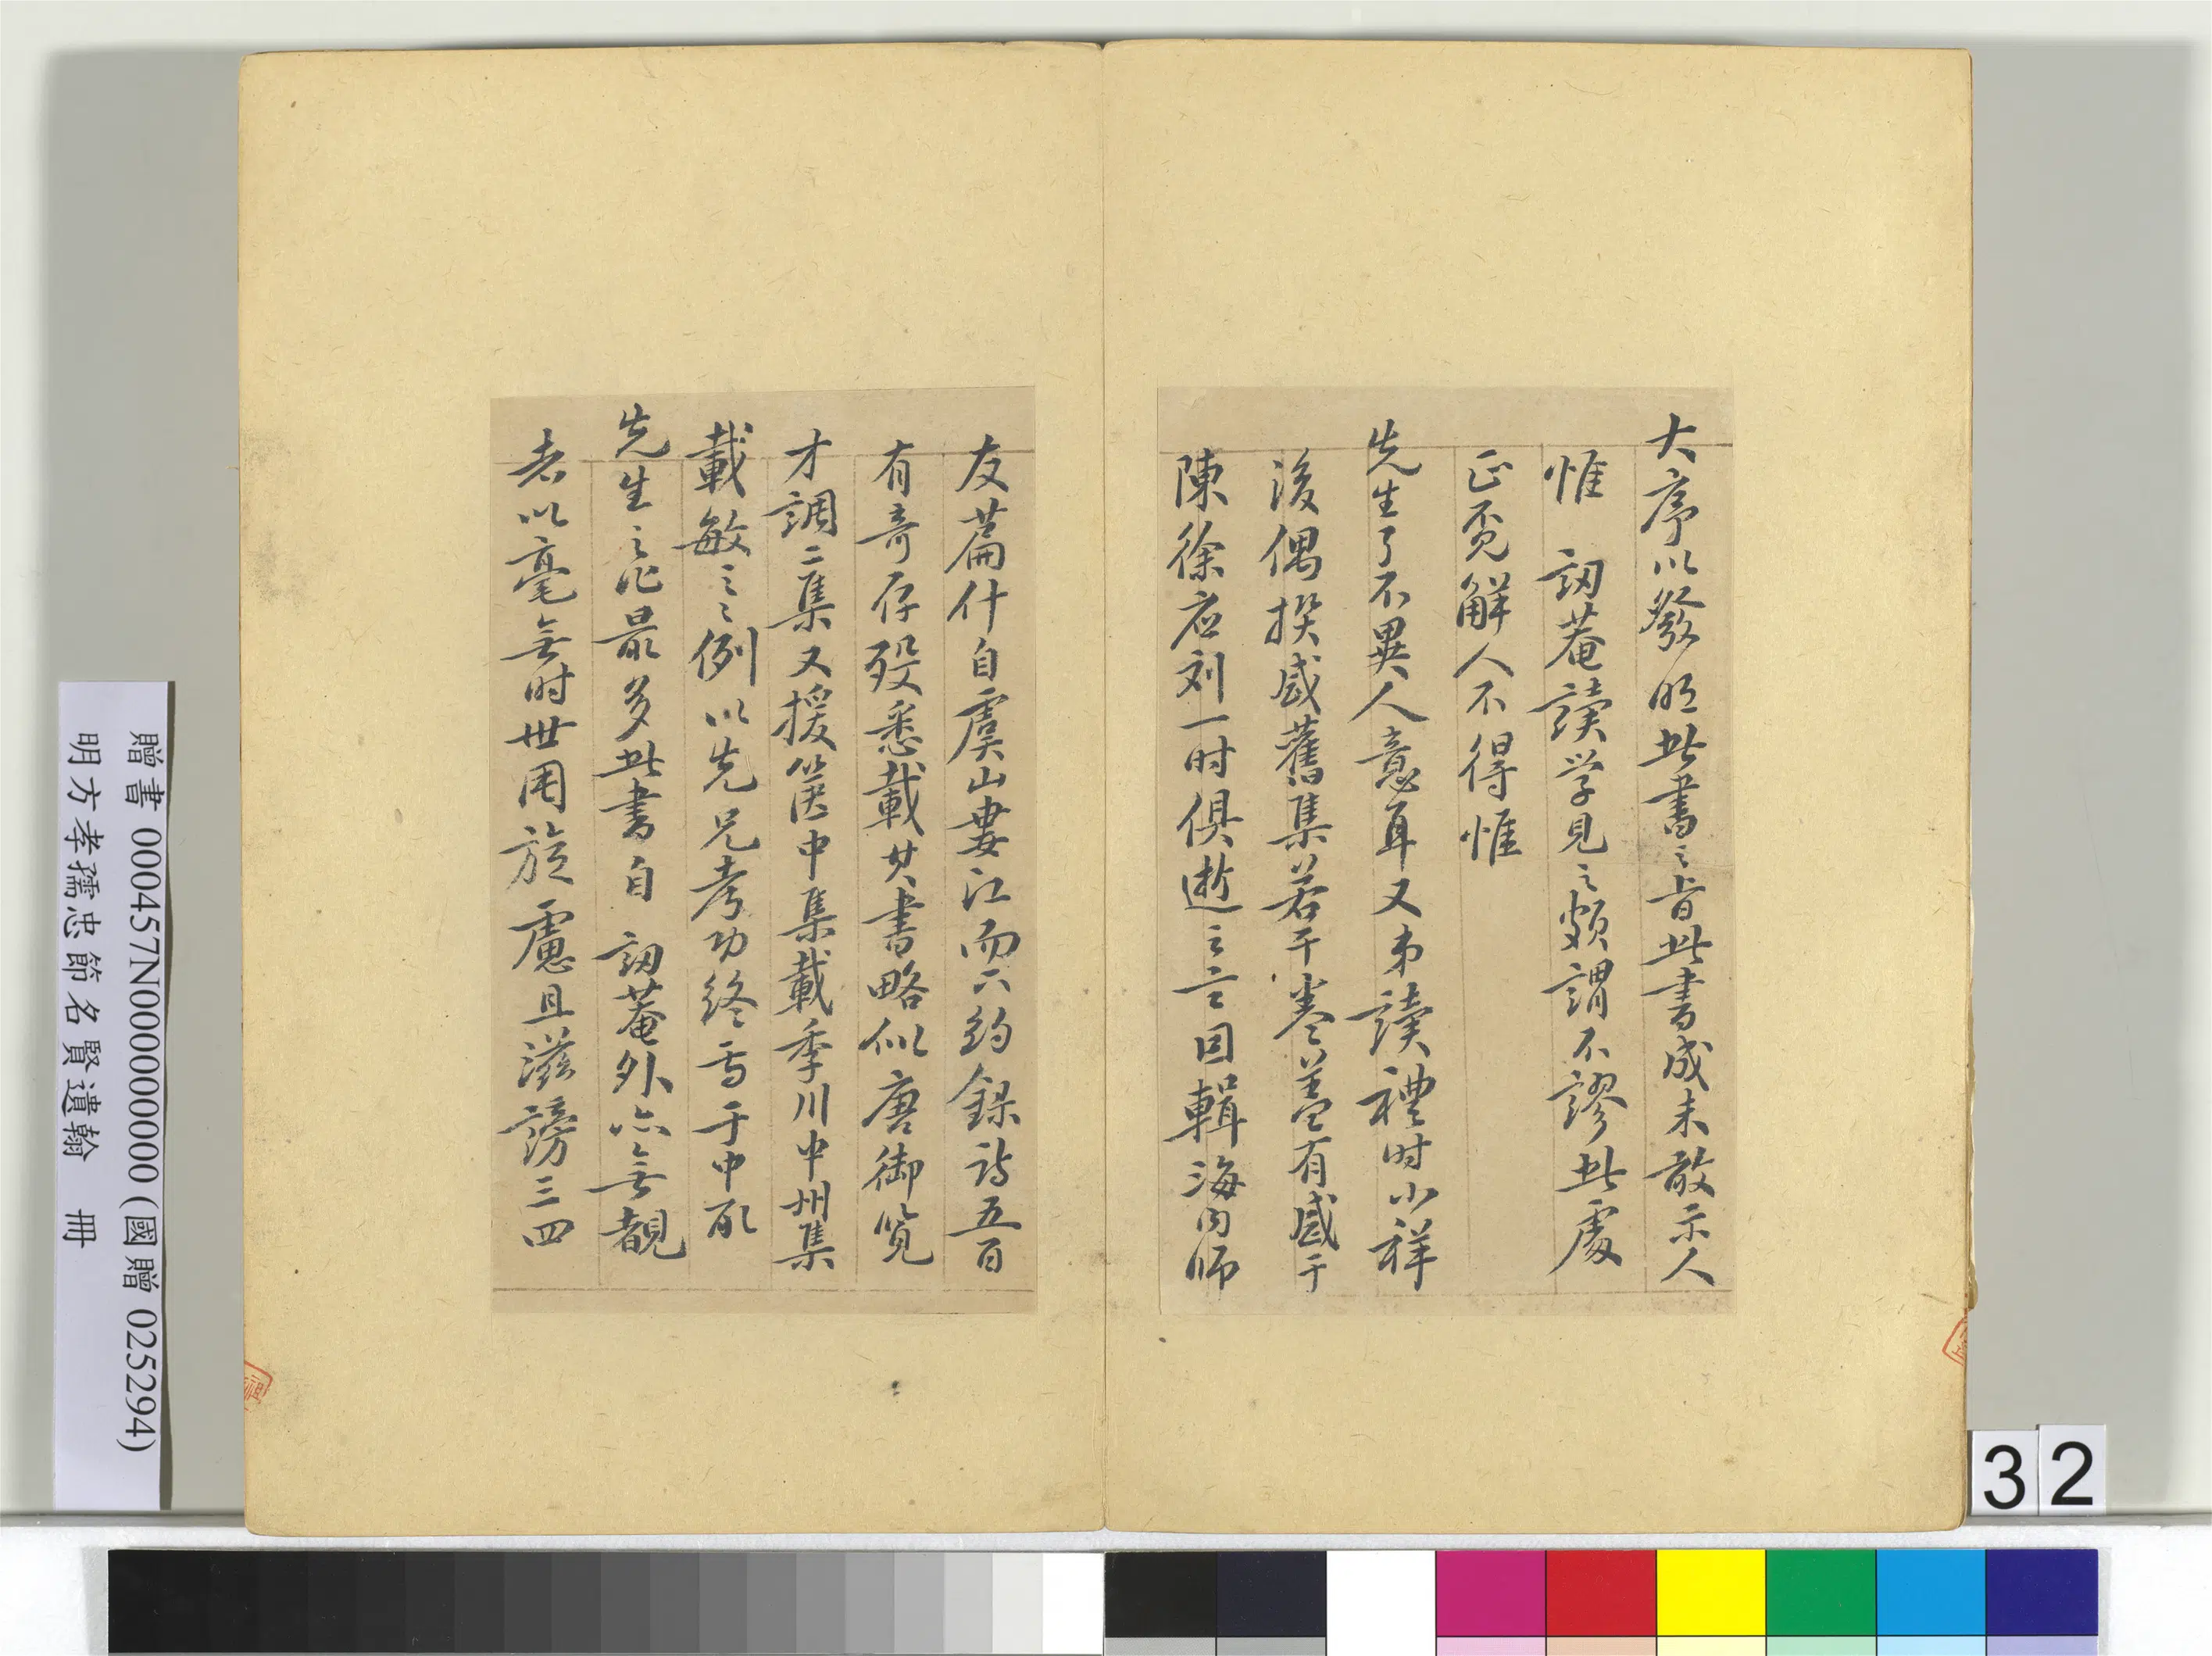 大序以發明此書之旨此書成未敢示人
惟 訒菴讀学見之頗謂不謬此處
正覓解人不得惟
先生了不異人意耳又弟讀禮時小祥
後偶撰感舊集若干卷蓋有感于
陳徐应刘一时俱逝之言因輯海内師
友篇什自虞山婁江而下約録诗五百
有奇存殁悉載其書略似唐御览
才調二集又援箧中集載季川中州集
載敏之之例以先兄考功終焉于中所
先生之作最多此書自 訒菴外亦無覩
者以毫無时世用旋慮且滋謗三四
贈書 000457N000000000 (國贈 025294)
明方孝孺忠節名賢遺翰 冊
32